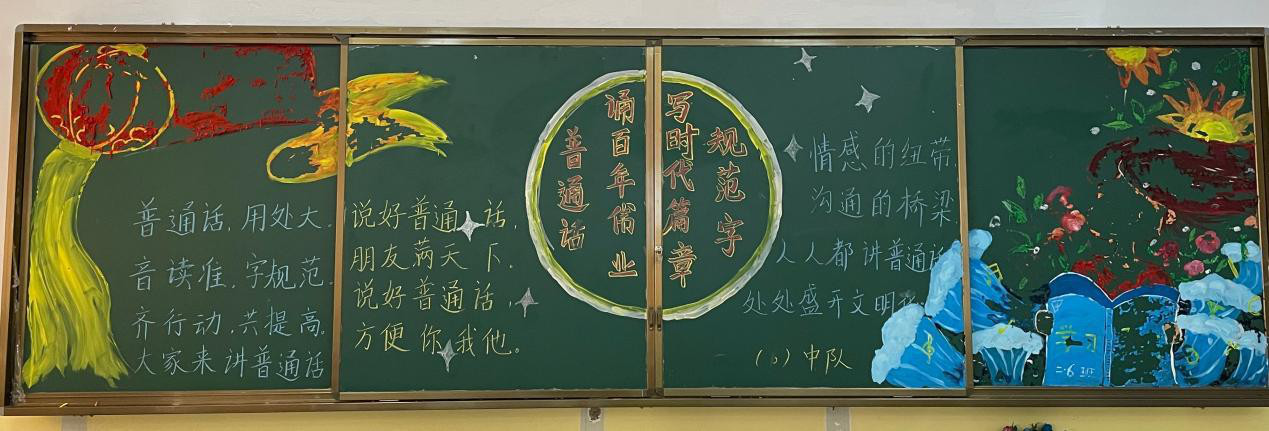 普通话,用处大.
音读准,字规范.
齐行动,共提高.
大家来讲普通话
说好普通话,
朋友满天下.
说好普通话,
方便你我他。
普通话
诵百年业
写时代篇章
规范字
情感的纽带,
沟通的桥梁
人人都讲普通话
处处盛开文明花
(6)中队
学习
二.6班